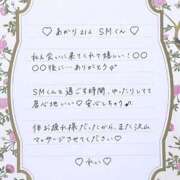 ♡ あかり212 SMくん ♡
私に会いに来てくれて嬉しい!○○
○○後に…ありがとう♡
SMくんと過ごす時間、ゆったりしてて
居心地いい♡安心しちゃう♪
体お疲れ様だったから、また沢山
マッサージさせてください♡
♡ れい ♡